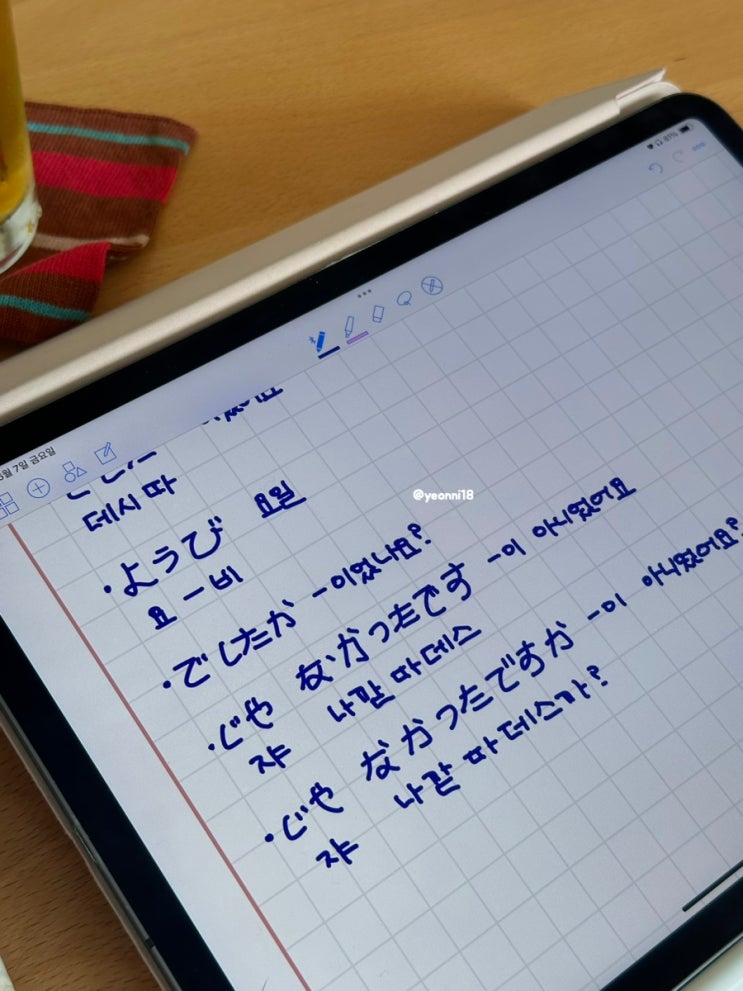 월 7일 금요일
81%
데시따
•ようび 요일
요-비
@yeonni18
•でしたか -이었나요?
•じゃ なかったです -이 아니었어요
쟈 나깓따데스
•じゃ なかったですか -이 아니었어요?
쟈 나깓따데스까?